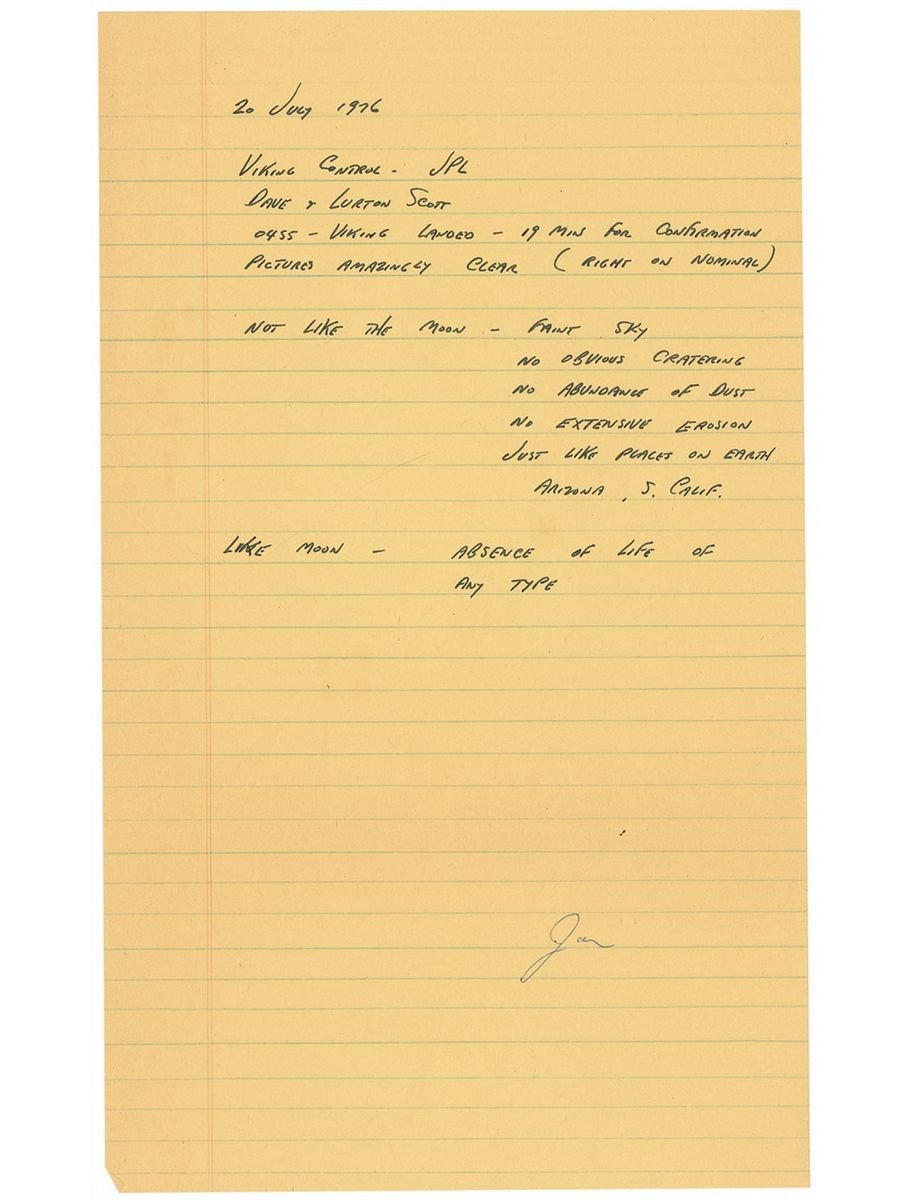 20 JULY 1976
VIKING CONTROL - JPL
DAVE & LURTON SCOTT
0455 - VIKING LANDED - 19 MIN FOR CONFIRMATION
PICTURES AMAZINGLY CLEAR (RIGHT ON NOMINAL)
NOT LIKE THE MOON - FAINT SKY
NO OBVIOUS CRATERING
NO ABUNDANCE OF DUST
NO EXTENSIVE EROSION
JUST LIKE PLACES ON EARTH
ARIZONA, S. CALIF.
LIKE MOON - ABSENCE OF LIFE OF
ANY TYPE